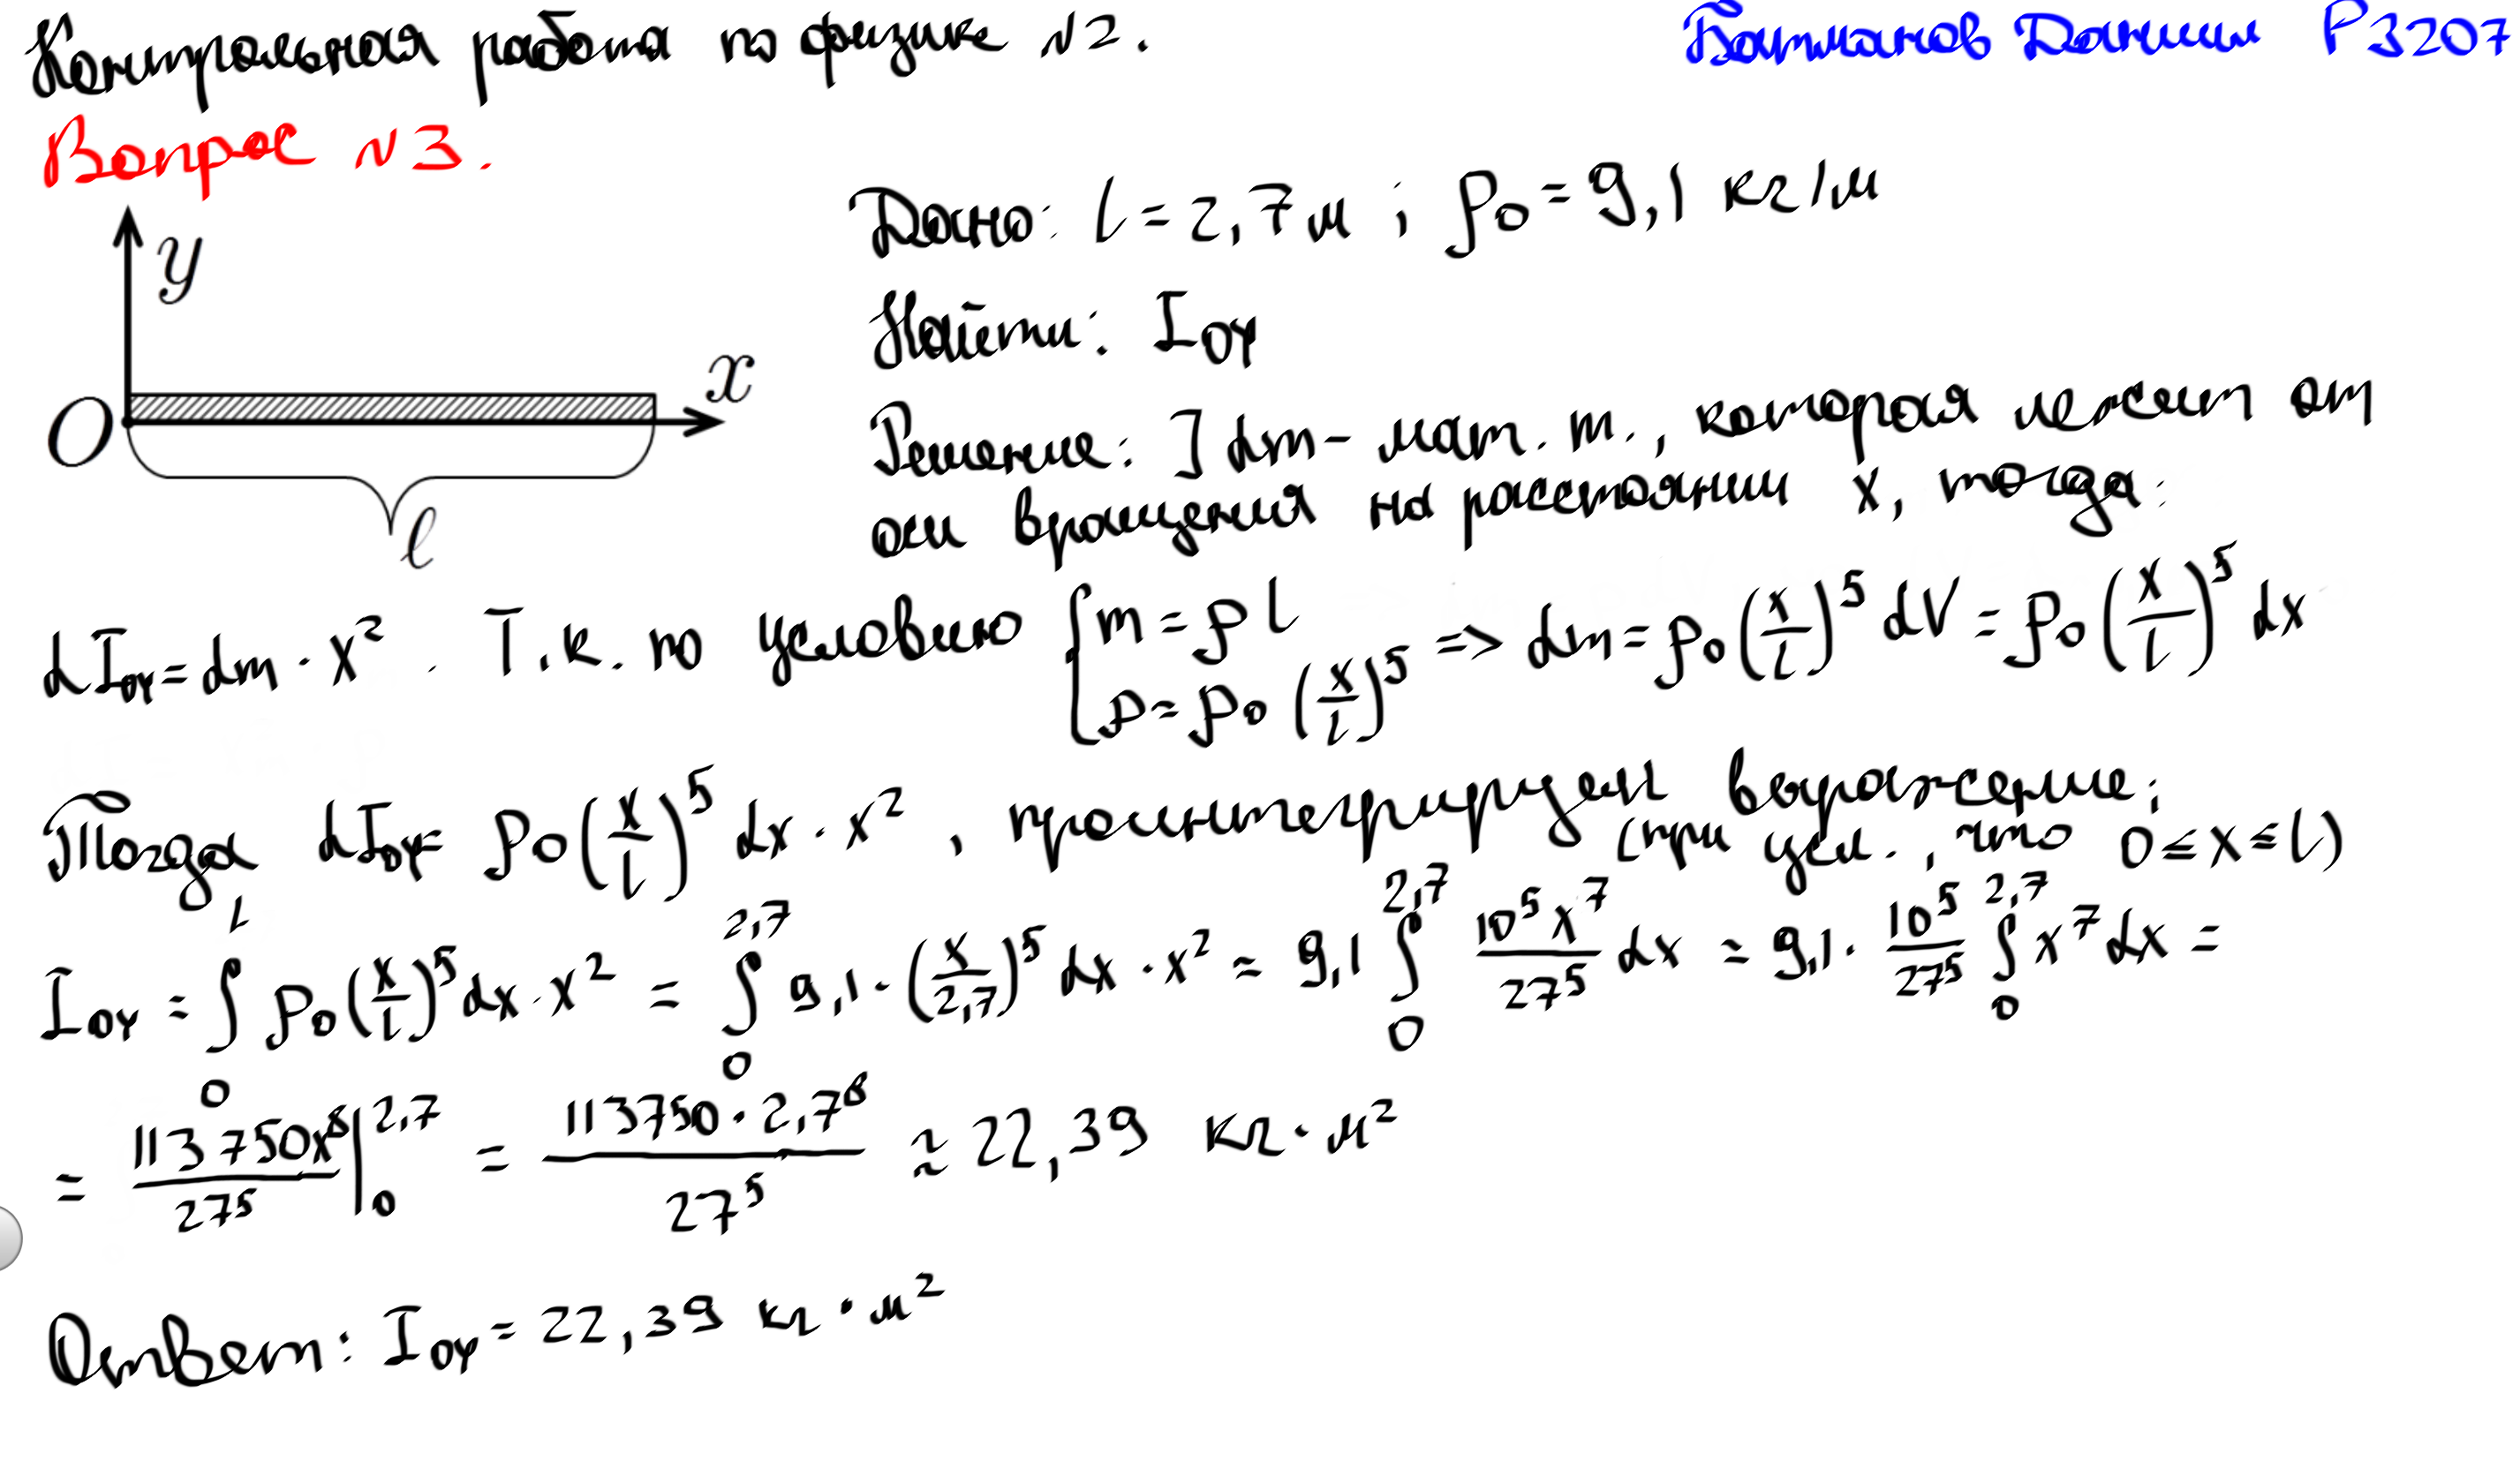 Контрольная работа по физике №2.
Батманов Даниил P3207
Вопрос №3.
y
O
x
ℓ
Дано: l = 2,7 м ; ρ₀ = 9,1 кг/м
Найти: I_OY
Решение: ] dm - мат. т., которая лежит от
оси вращения на расстоянии x, тогда:
dI_OY = dm · x² . Т.к. по условию { m = ρ l ; ρ = ρ₀ (x/l)⁵ => dm = ρ₀ (x/l)⁵ dV = ρ₀ (x/l)⁵ dx
Тогда dI_OY = ρ₀ (x/l)⁵ dx · x² , проинтегрируем выражение:
(при усл., что 0 ≤ x ≤ l)
I_OY = ∫₀^l ρ₀ (x/l)⁵ dx · x² = ∫₀^2,7 9,1 · (x/2,7)⁵ dx · x² = 9,1 ∫₀^2,7 10⁵x⁷/27⁵ dx = 9,1 · 10⁵/27⁵ ∫₀^2,7 x⁷ dx =
= 113750x⁸/27⁵ |₀^2,7 = 113750 · 2,7⁸/27⁵ ≈ 22,39 кг · м²
Ответ: I_OY = 22,39 кг · м²